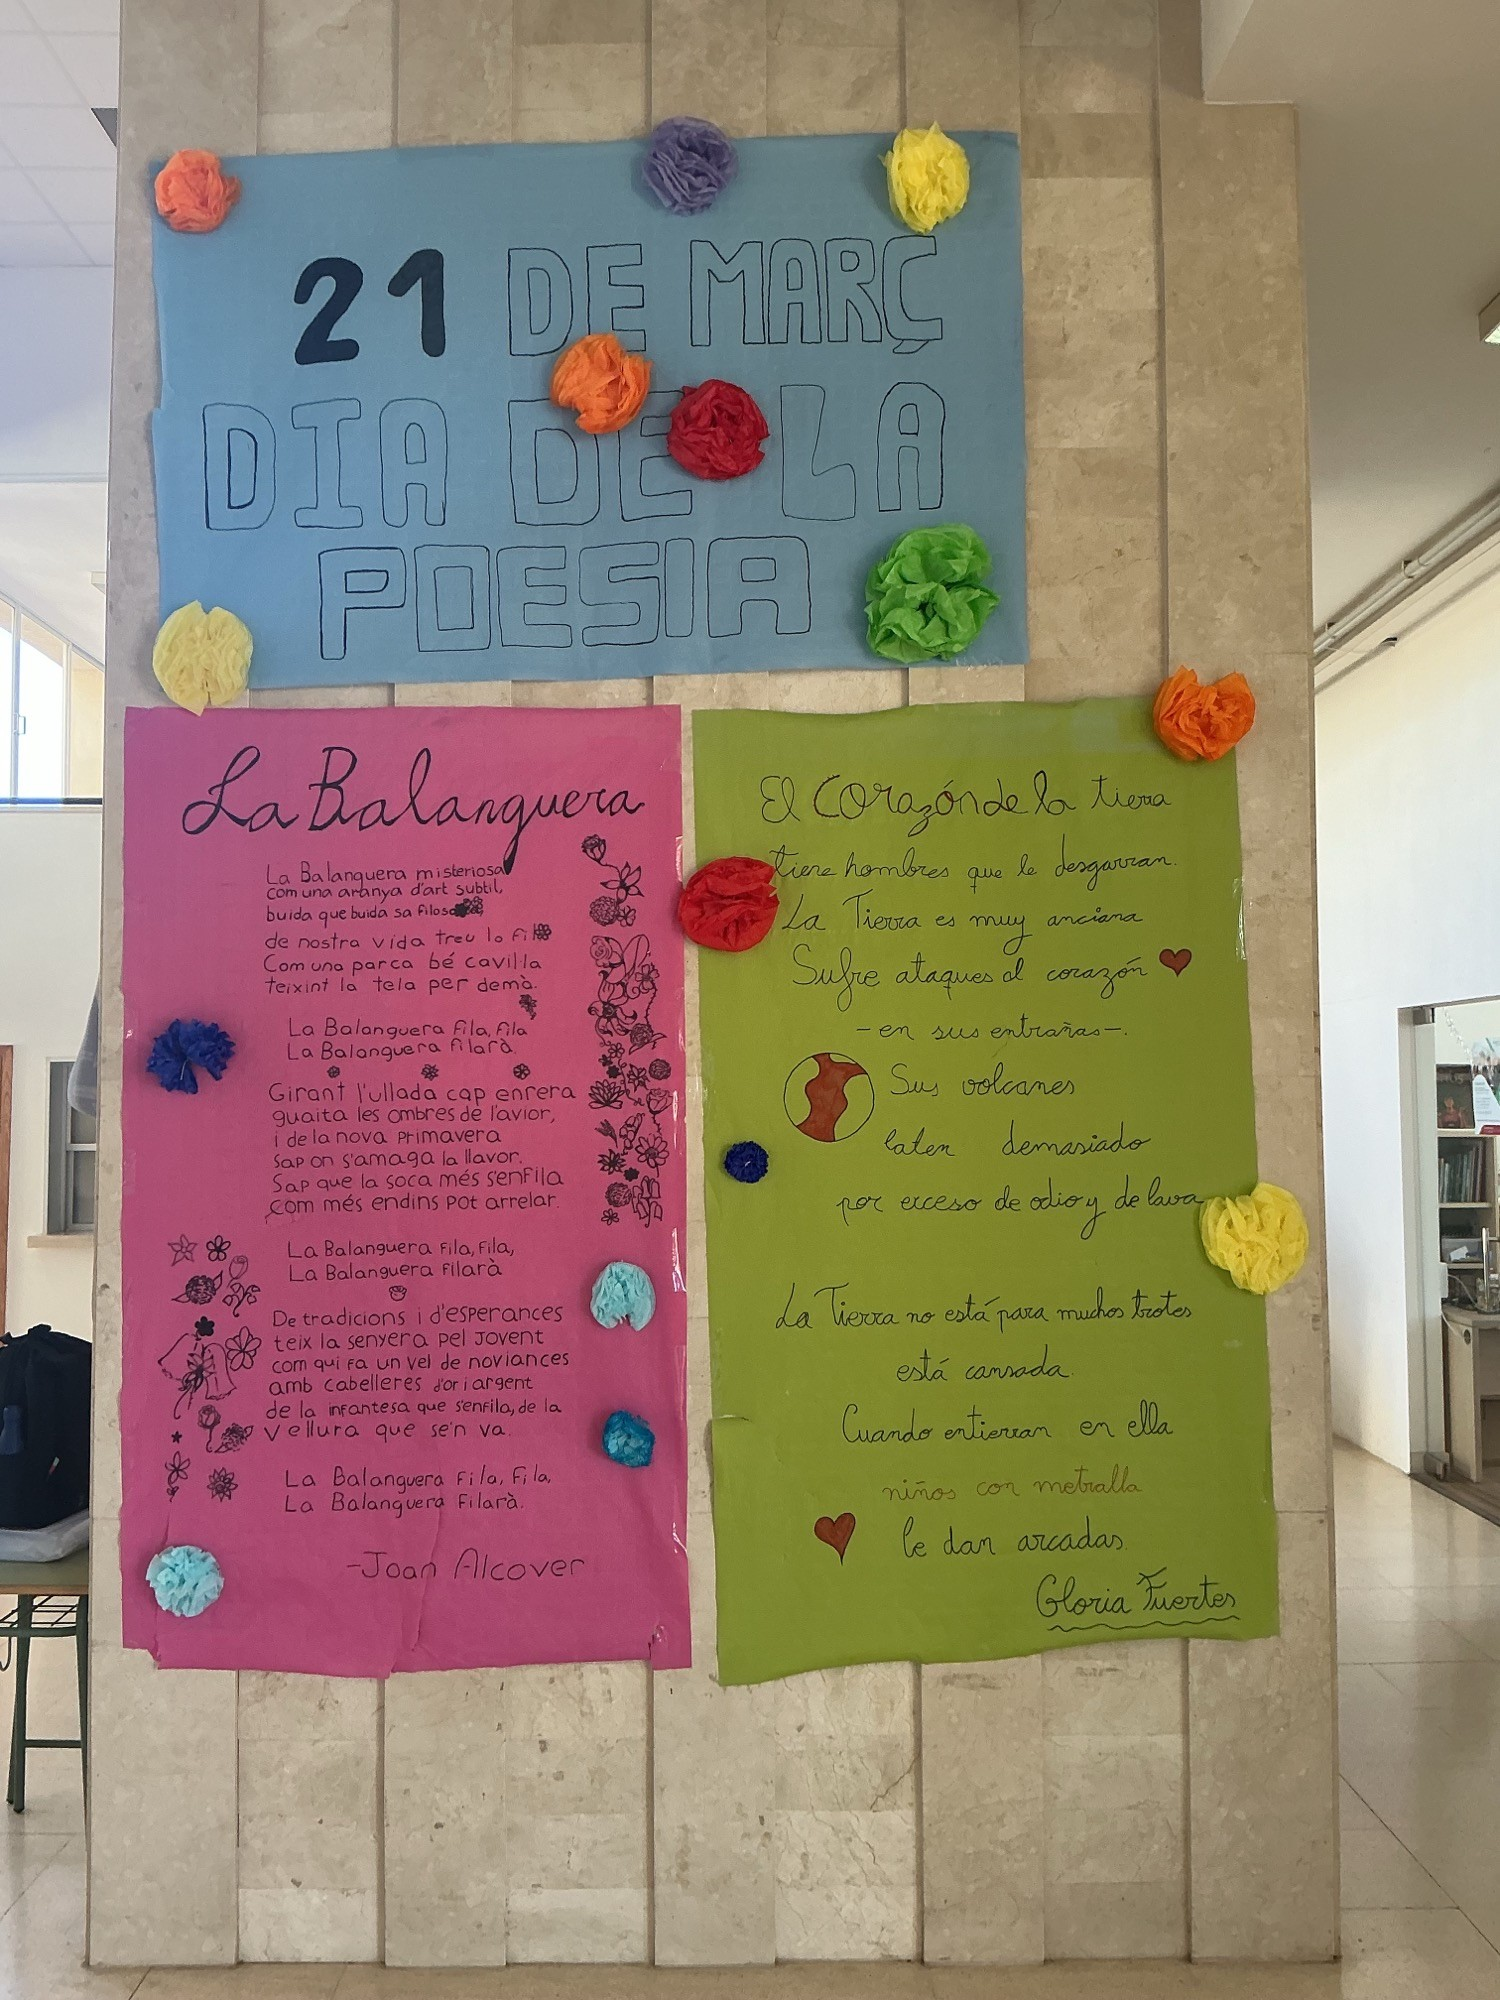 21 DE MARÇ
DIA DE LA
POESIA
La Balanguera
La Balanguera misteriosa
com una aranya d'art subtil,
buida que buida sa filosa
de nostra vida treu lo fil
Com una parca bé cavil·la
teixint la tela per demà.
La Balanguera fila, fila
La Balanguera filarà.
Girant l'ullada cap enrera
guaita les ombres de l'avior,
i de la nova primavera
sap on s'amaga la llavor.
Sap que la soca més s'enfila
com més endins pot arrelar.
La Balanguera fila, fila,
La Balanguera filarà
De tradicions i d'esperances
teix la senyera pel jovent
com qui fa un vel de noviances
amb cabelleres d'or i argent
de la infantesa que s'enfila, de la
vellura que se'n va.
La Balanguera fila, fila,
La Balanguera filarà.
-Joan Alcover
El corazón de la tierra
tiene hombres que le desgarran.
La Tierra es muy anciana
Sufre ataques al corazón
-en sus entrañas-.
Sus volcanes
laten demasiado
por exceso de odio y de lava
La Tierra no está para muchos trotes
está cansada.
Cuando entierran en ella
niños con metralla
le dan arcadas.
Gloria Fuertes